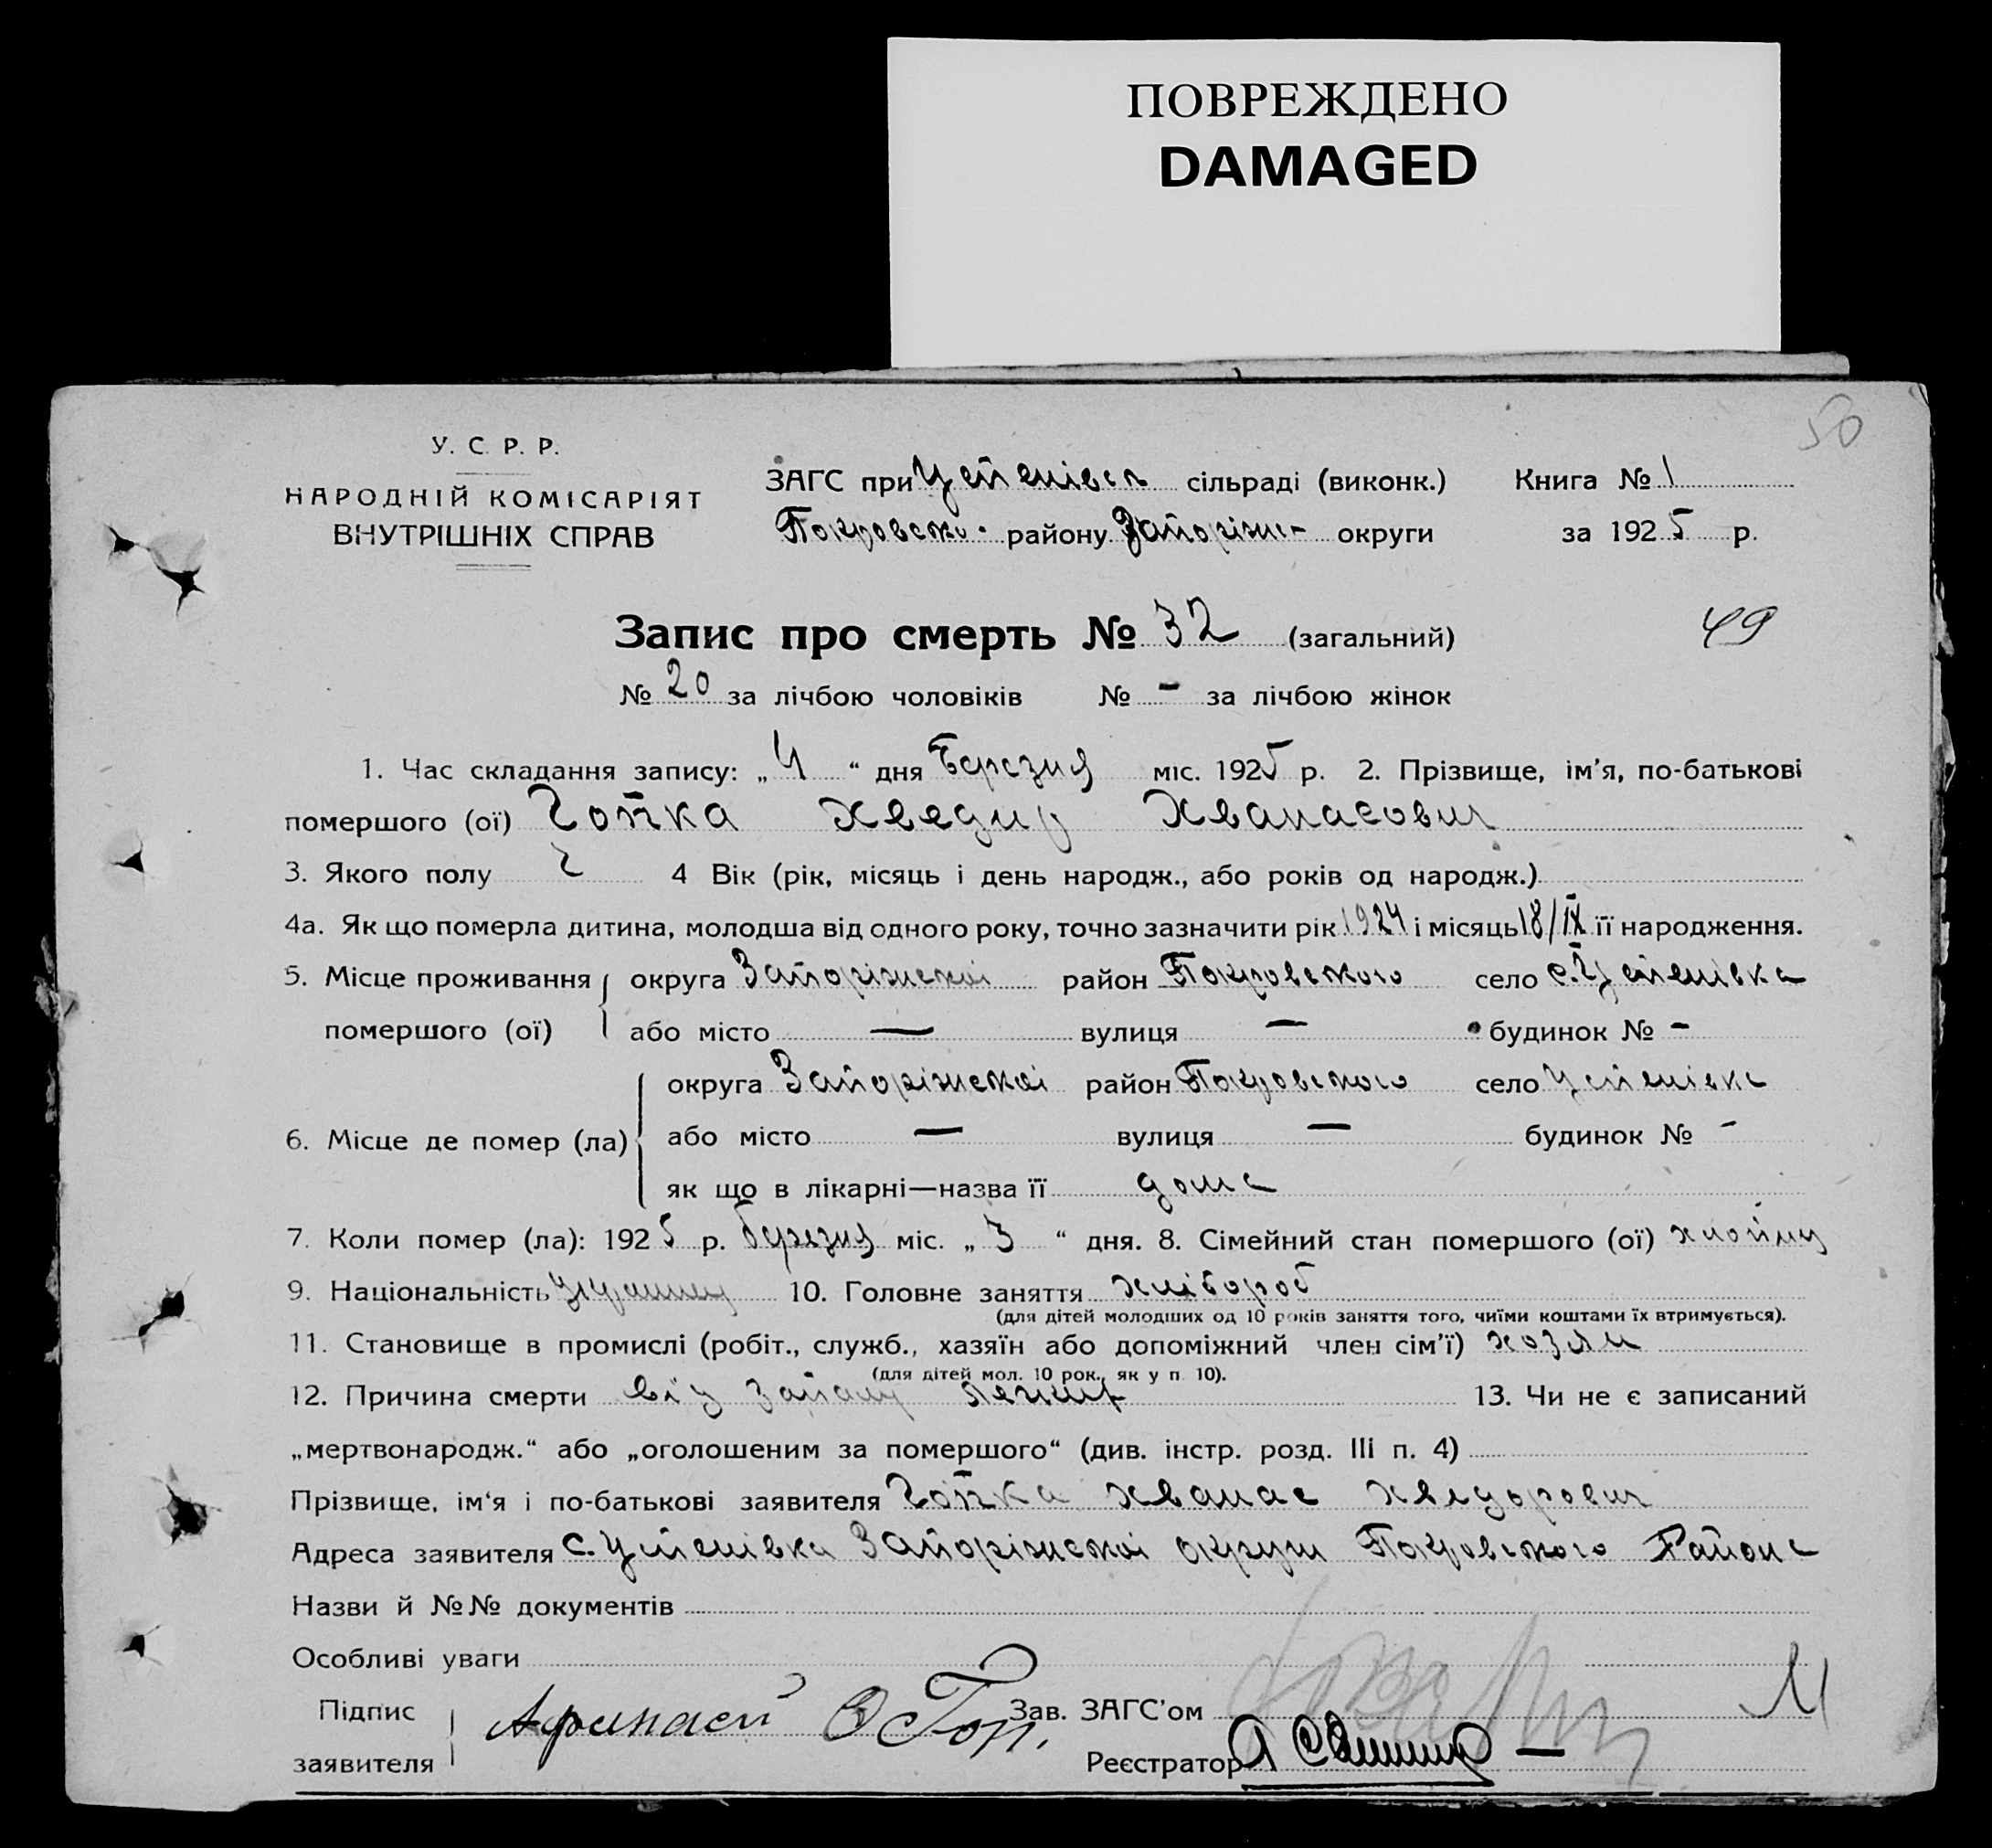 ПОВРЕЖДЕНО
DAMAGED
50
У. С. Р. Р.
НАРОДНІЙ КОМІСАРІЯТ
ВНУТРІШНІХ СПРАВ
ЗАГС при Успенівск сільраді (виконк.) Книга № 1
Покровсько- району Запоріжс- округи за 1925 р.
Запис про смерть № 32 (загальний) 49
№ 20 за лічбою чоловіків № - за лічбою жінок
1. Час складання запису: „4“ дня Березня міс. 1925 р. 2. Прізвище, ім’я, по-батькові
помершого (ої) Гопка Хведир Хванасович
3. Якого полу Ч 4 Вік (рік, місяць і день народж., або років од народж.)
4а. Як що померла дитина, молодша від одного року, точно зазначити рік 1924 і місяць 18/IX її народження.
5. Місце проживання округа Запоріжської район Покровського село с. Успенівка
помершого (ої) або місто — вулиця — будинок № -
округа Запоріжскої район Покровського село Успенівка
6. Місце де помер (ла) або місто — вулиця — будинок № -
як що в лікарні—назва її дома
7. Коли помер (ла): 1925 р. березня міс. „3“ дня. 8. Сімейний стан помершого (ої)
9. Національність Українец 10. Головне заняття хлібороб
(для дітей молодших од 10 років заняття того, чиїми коштами їх втримується).
11. Становище в промислі (робіт., служб., хазяїн або допоміжний член сім’ї) хозяін
(для дітей мол. 10 рок., як у п. 10).
12. Причина смерти від запалу легких 13. Чи не є записаний
„мертвонародж.“ або „оголошеним за помершого“ (див. інстр. розд. III п. 4)
Прізвище, ім‘я і по-батькові заявителя Гопка Хванас Хведорович
Адреса заявителя с. Успенівка Запоріжскої округи Покровського Района
Назви й №№ документів
Особливі уваги
Підпис заявителя Афанасій Гоп. Зав. ЗАГС’ом
Реєстратор